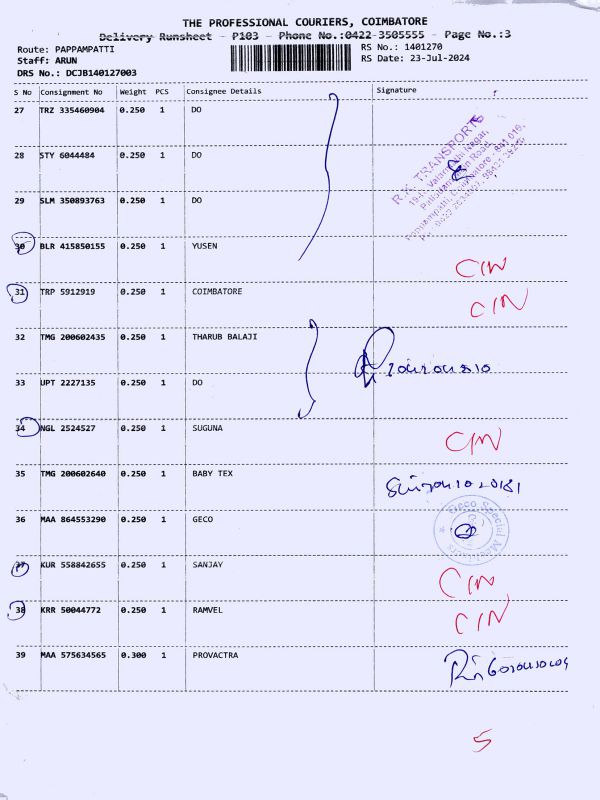 THE PROFESSIONAL COURIERS, COIMBATORE
Delivery Runsheet - P103 - Phone No.:0422-3505555 - Page No.:3
Route: PAPPAMPATTI
RS No.: 1401270
Staff: ARUN
RS Date: 23-Jul-2024
DRS No.: DCJB140127003
S No Consignment No Weight PCS Consignee Details Signature
27 TRZ 335460904 0.250 1 DO
R.K. TRANSPORTS
28 STY 6044484 0.250 1 DO
29 SLM 350893763 0.250 1 DO
30 BLR 415850155 0.250 1 YUSEN
CIN
31 TRP 5912919 0.250 1 COIMBATORE
CIN
32 TMG 200602435 0.250 1 THARUB BALAJI
33 UPT 2227135 0.250 1 DO
34 NGL 2524527 0.250 1 SUGUNA
CIN
35 TMG 200602640 0.250 1 BABY TEX
36 MAA 864553290 0.250 1 GECO
Geco Special
37 KUR 558842655 0.250 1 SANJAY
CIN
38 KRR 50044772 0.250 1 RAMVEL
CIN
39 MAA 575634565 0.300 1 PROVACTRA
5